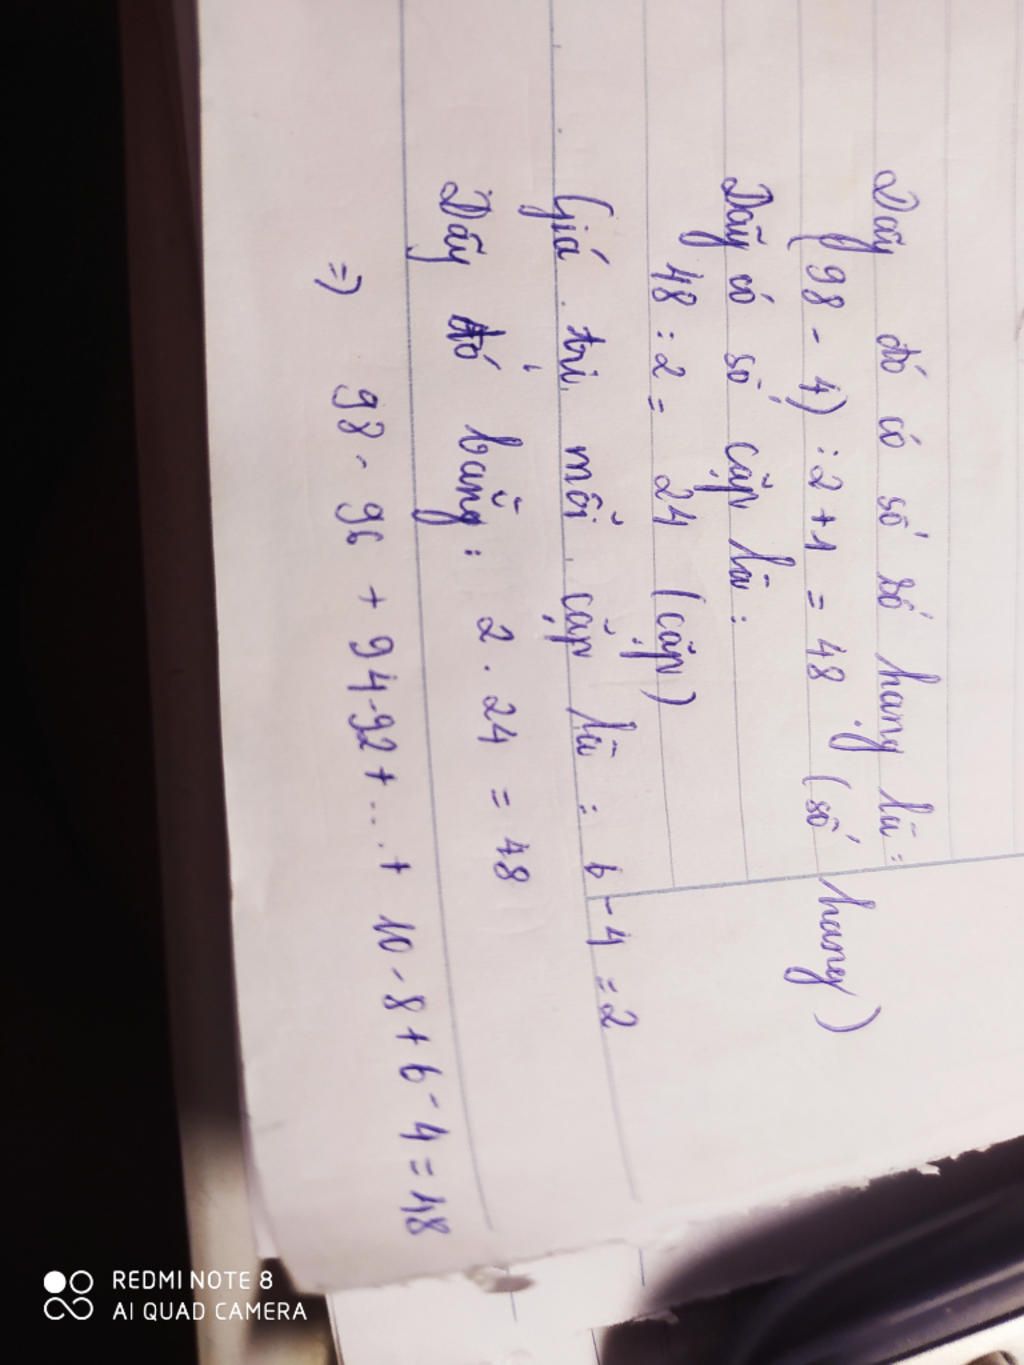 Dãy đó có số số hạng là:
(98 - 4) : 2 + 1 = 48 (số hạng)
Dãy có số cặp là:
48 : 2 = 24 (cặp)
Giá trị mỗi cặp là : 6 - 4 = 2
Dãy đó bằng : 2 . 24 = 48
=> 98 - 96 + 94 - 92 + ... + 10 - 8 + 6 - 4 = 48
REDMI NOTE 8
AI QUAD CAMERA